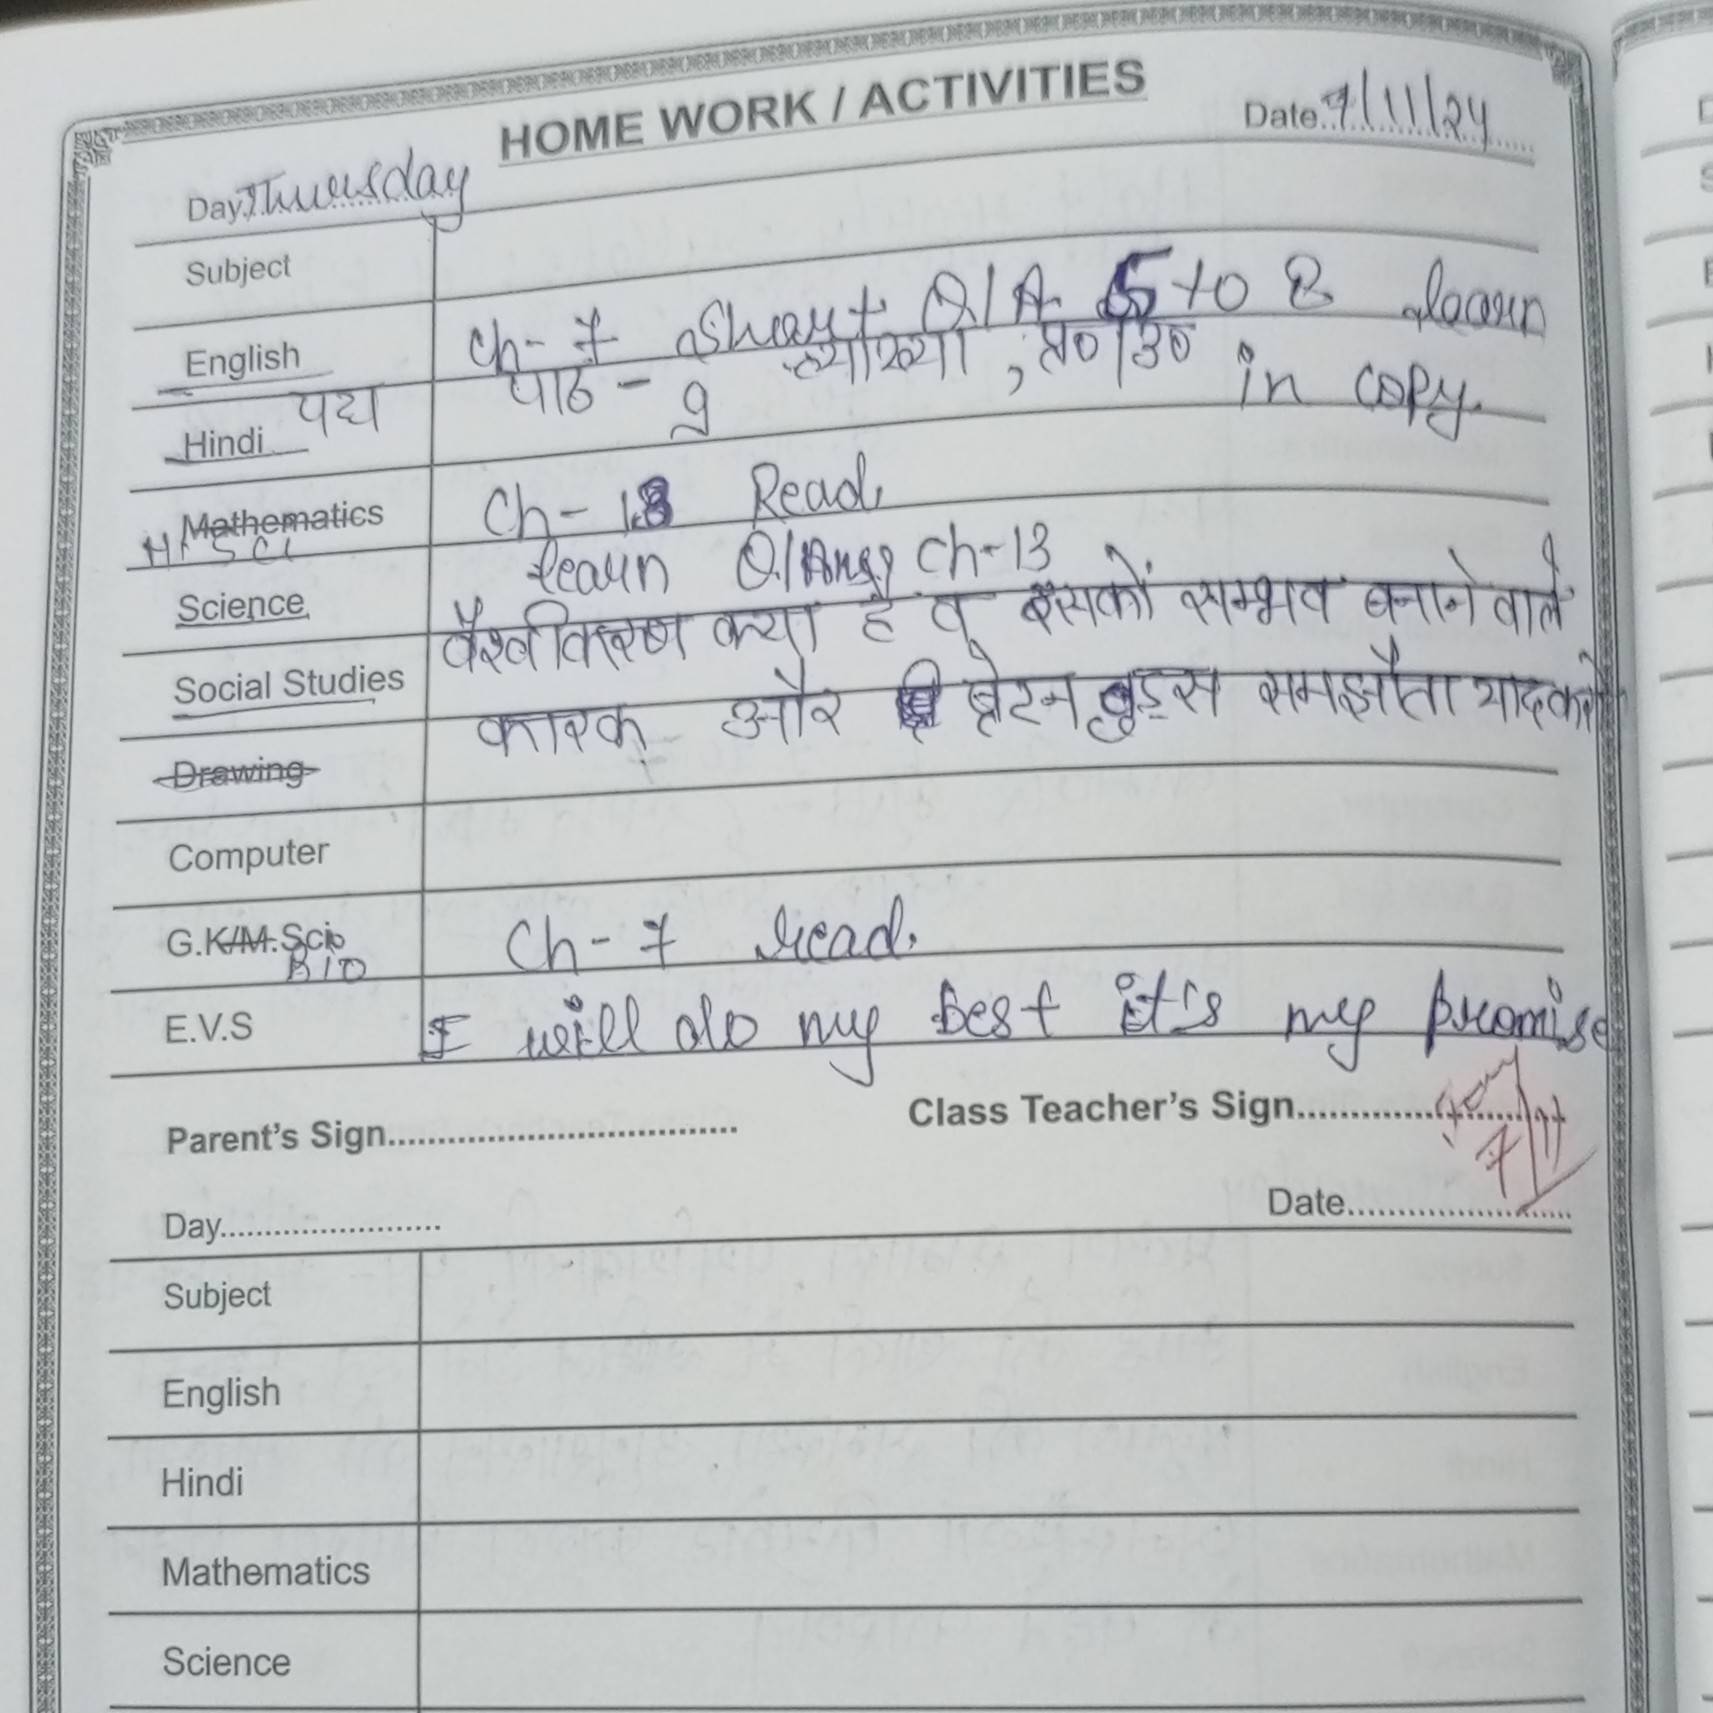 HOME WORK / ACTIVITIES
Date..7/11/24
Day.Thursday
Subject
English Ch-7 Short Q/A 5 to 8 learn
Hindi पद्य पाठ - 9 व्याख्या, प्र०/उ० in copy.
Mathematics Ch-18 Read
H. SCI
Science learn Q/Ans, Ch-13
Social Studies वैश्वीकरण क्या है व इसको सम्भव बनाने वाले
कारक और ब्रेटन वुड्स समझौता याद करो
Drawing
Computer
G.K/M.Sci Ch-7 Read.
BIO
E.V.S I will do my best it's my promise
Parent's Sign..................................
Class Teacher's Sign..............
7/11
Day......................
Date......................
Subject
English
Hindi
Mathematics
Science